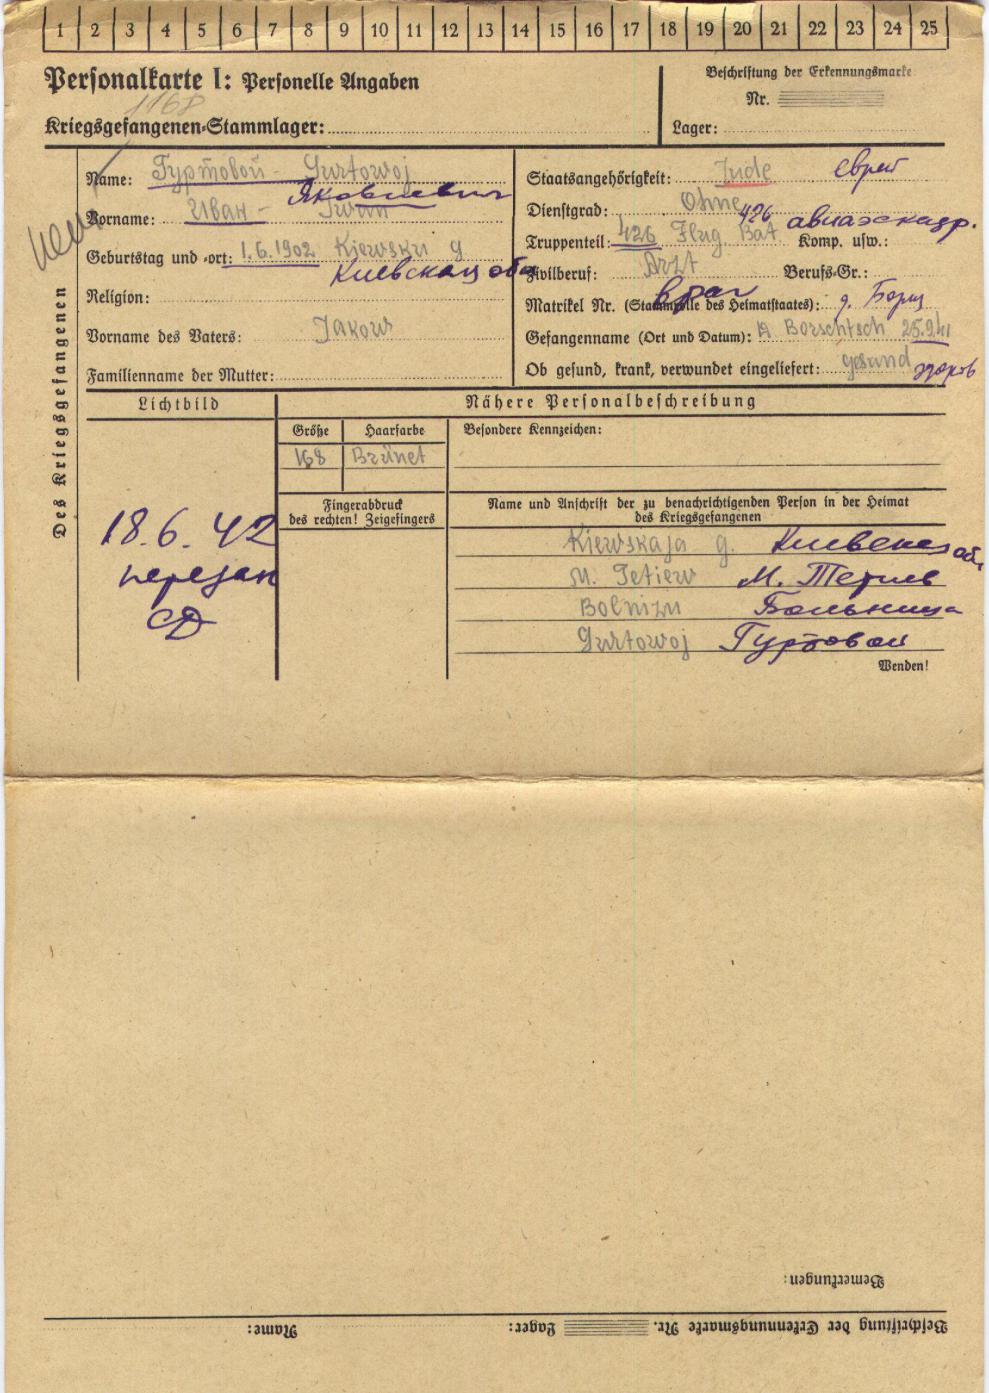 1 2 3 4 5 6 7 8 9 10 11 12 13 14 15 16 17 18 19 20 21 22 23 24 25
Personalkarte I: Personelle Angaben
1168
Kriegsgefangenen-Stammlager:
Beschriftung der Erkennungsmarke
Nr.
Lager:
Des Kriegsgefangenen
Name: Гуртовой - Gurtowoj
Яковлевич
Vorname: Иван - Iwan
Geburtstag und -ort: 1.6.1902 Kiewsku g
Киевская обл
Religion:
Vorname des Vaters: Jakow
Familienname der Mutter:
Staatsangehörigkeit: Jude еврей
Dienstgrad: Ohne
426 авиаэскадр.
Truppenteil: 426 Flug. Bat Komp. usw.:
Zivilberuf: Arzt Berufs-Gr.:
врач
Matrikel Nr. (Stammrolle des Heimatstaates): д. Борщ
Gefangenname (Ort und Datum): Borschtsch 25.9.41
Ob gesund, krank, verwundet eingeliefert: gesund здоров
Lichtbild
Nähere Personalbeschreibung
Größe Haarfarbe Besondere Kennzeichen:
168 Brünet
Fingerabdruck
des rechten! Zeigefingers
Name und Anschrift der zu benachrichtigenden Person in der Heimat
des Kriegsgefangenen
18.6.42
передан
СД
Kiewskaja g. Киевская обл
M. Tetiew М. Тетиев
Bolnizu Больница
Gurtowoj Гуртовой
Wenden!
Bemerkungen:
Beschriftung der Erkennungsmarke Nr. Lager: Name: